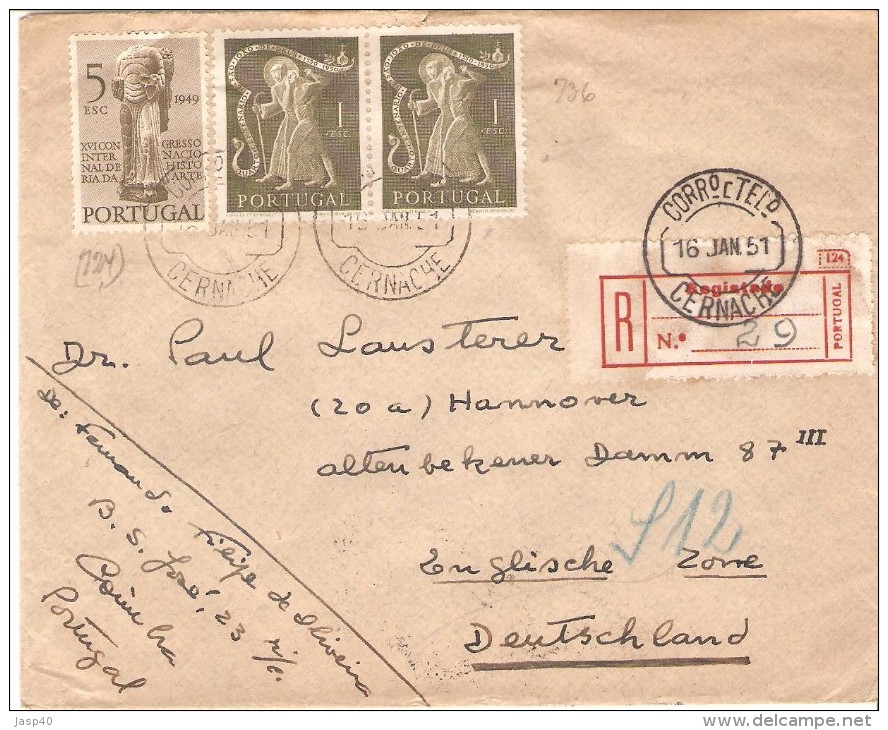 5
ESC
1949
XVI CON GRESSO
INTER NACIO
NAL DE HISTO
RIA DA ARTE
PORTUGAL
1
ESC.
PORTUGAL
1
ESC.
PORTUGAL
736
(724)
16 JAN. 51
CERNACHE
16 JAN. 51
CERNACHE
CORRO E TELO
16 JAN. 51
CERNACHE
124
R
Registada
N.º 29
PORTUGAL
Dr. Paul Lansterer
(20a) Hannover
altenbekener Damm 87 III
S12
Englische Zone
Deutschland
De: Fernando Filipe de Oliveira
B. S. José, 23 r/c.
Coimbra
Portugal
Jasp40
delcampe.net